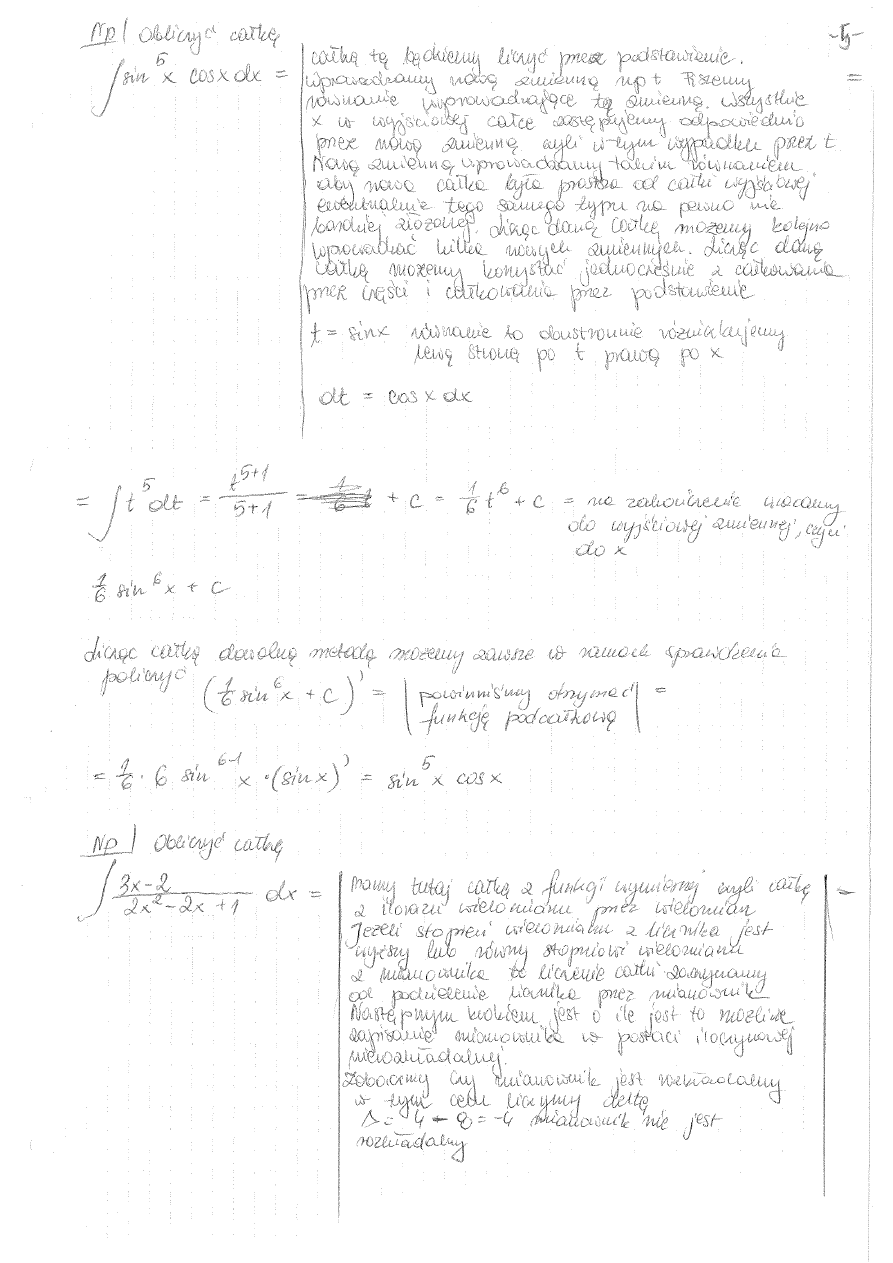 -5-
Np/ Obliczyć całkę
∫ sin⁵x cosx dx = | całkę tę będziemy liczyć przez podstawienie.
Wprowadzamy nową zmienną np t Piszemy =
równanie wyprowadzające tę zmienną. Wszystkie
x w wyjściowej całce zastępujemy odpowiednio
przez nową zmienną czyli w tym wypadku przez t
Nową zmienną wprowadzamy takim równaniem
aby nowa całka była prostsza od całki wyjściowej
ewentualnie tego samego typu na pewno nie
bardziej złożonej. Licząc daną całkę możemy kolejno
wprowadzać kilka nowych zmiennych. Licząc daną
całkę możemy korzystać jednocześnie z całkowania
przez części i całkowania przez podstawienie
t = sinx równanie to obustronnie różniczkujemy
lewą stronę po t prawą po x
dt = cos x dx
= ∫ t⁵ dt = t⁵⁺¹/5+1 = + c = 1/6 t⁶ + c = na zakończenie wracamy
do wyjściowej zmiennej, czyli
do x
1/6 sin⁶x + c
Licząc całkę dowolną metodą możemy zawsze w ramach sprawdzenia
policzyć (1/6 sin⁶x + c)' = | powinniśmy otrzymać | =
funkcję podcałkową
= 1/6 · 6 sin⁶⁻¹x · (sinx)' = sin⁵x cosx
Np/ Obliczyć całkę
∫ 3x-2/2x²-2x+1 dx = | Mamy tutaj całkę z funkcji wymiernej czyli całkę | =
z ilorazu wielomianu przez wielomian
Jeżeli stopień wielomianu z licznika jest
wyższy lub równy stopniowi wielomianu
z mianownika to liczenie całki zaczynamy
od podzielenie licznika przez mianownik
Następnym krokiem jest o ile jest to możliwe
zapisanie mianownika w postaci iloczynowej
nierozkładalnej.
Zobaczmy czy mianownik jest rozkładalny
w tym celu liczymy deltę
Δ = 4 - 8 = -4 mianownik nie jest
rozkładalny